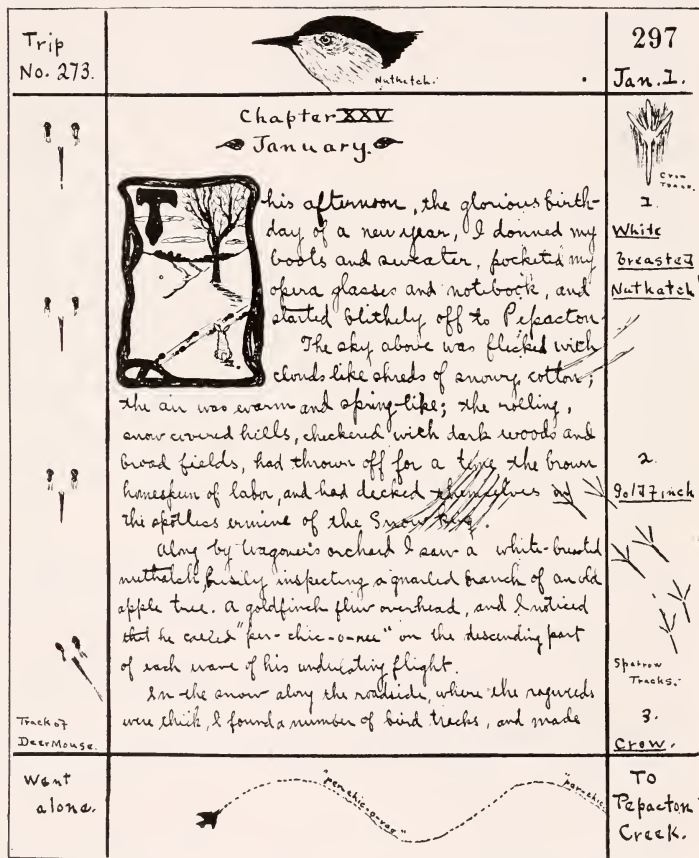 Trip
No. 273.
Nuthatch.
297
Jan. 1.
Chapter XXV
January.
This afternoon, the glorious birth-
day of a new year, I donned my
boots and sweater, pocketed my
opera glasses and notebook, and
started blithely off to Pepacton.
The sky above was flecked with
clouds like shreds of snowy cotton;
the air was warm and spring-like; the rolling,
snow covered hills, checkered with dark woods and
broad fields, had thrown off for a time the brown
homespun of labor, and had decked themselves in
the spotless ermine of the Snow King.
Along by Wagoner's orchard I saw a white-breasted
nuthatch, busily inspecting a gnarled branch of an old
apple tree. A goldfinch flew overhead, and I noticed
that he called "per-chic-o-ree" on the descending part
of each wave of his undulating flight.
In the snow along the roadside, where the ragweeds
were thick, I found a number of bird tracks, and made
Crow
Track.
1.
White
Breasted
Nuthatch
2.
Goldfinch
Sparrow
Tracks.
3.
Crow.
Track of
Deer Mouse.
Went
alone.
"per-chic-o-ree"
"per-chic-
To
Pepacton
Creek.